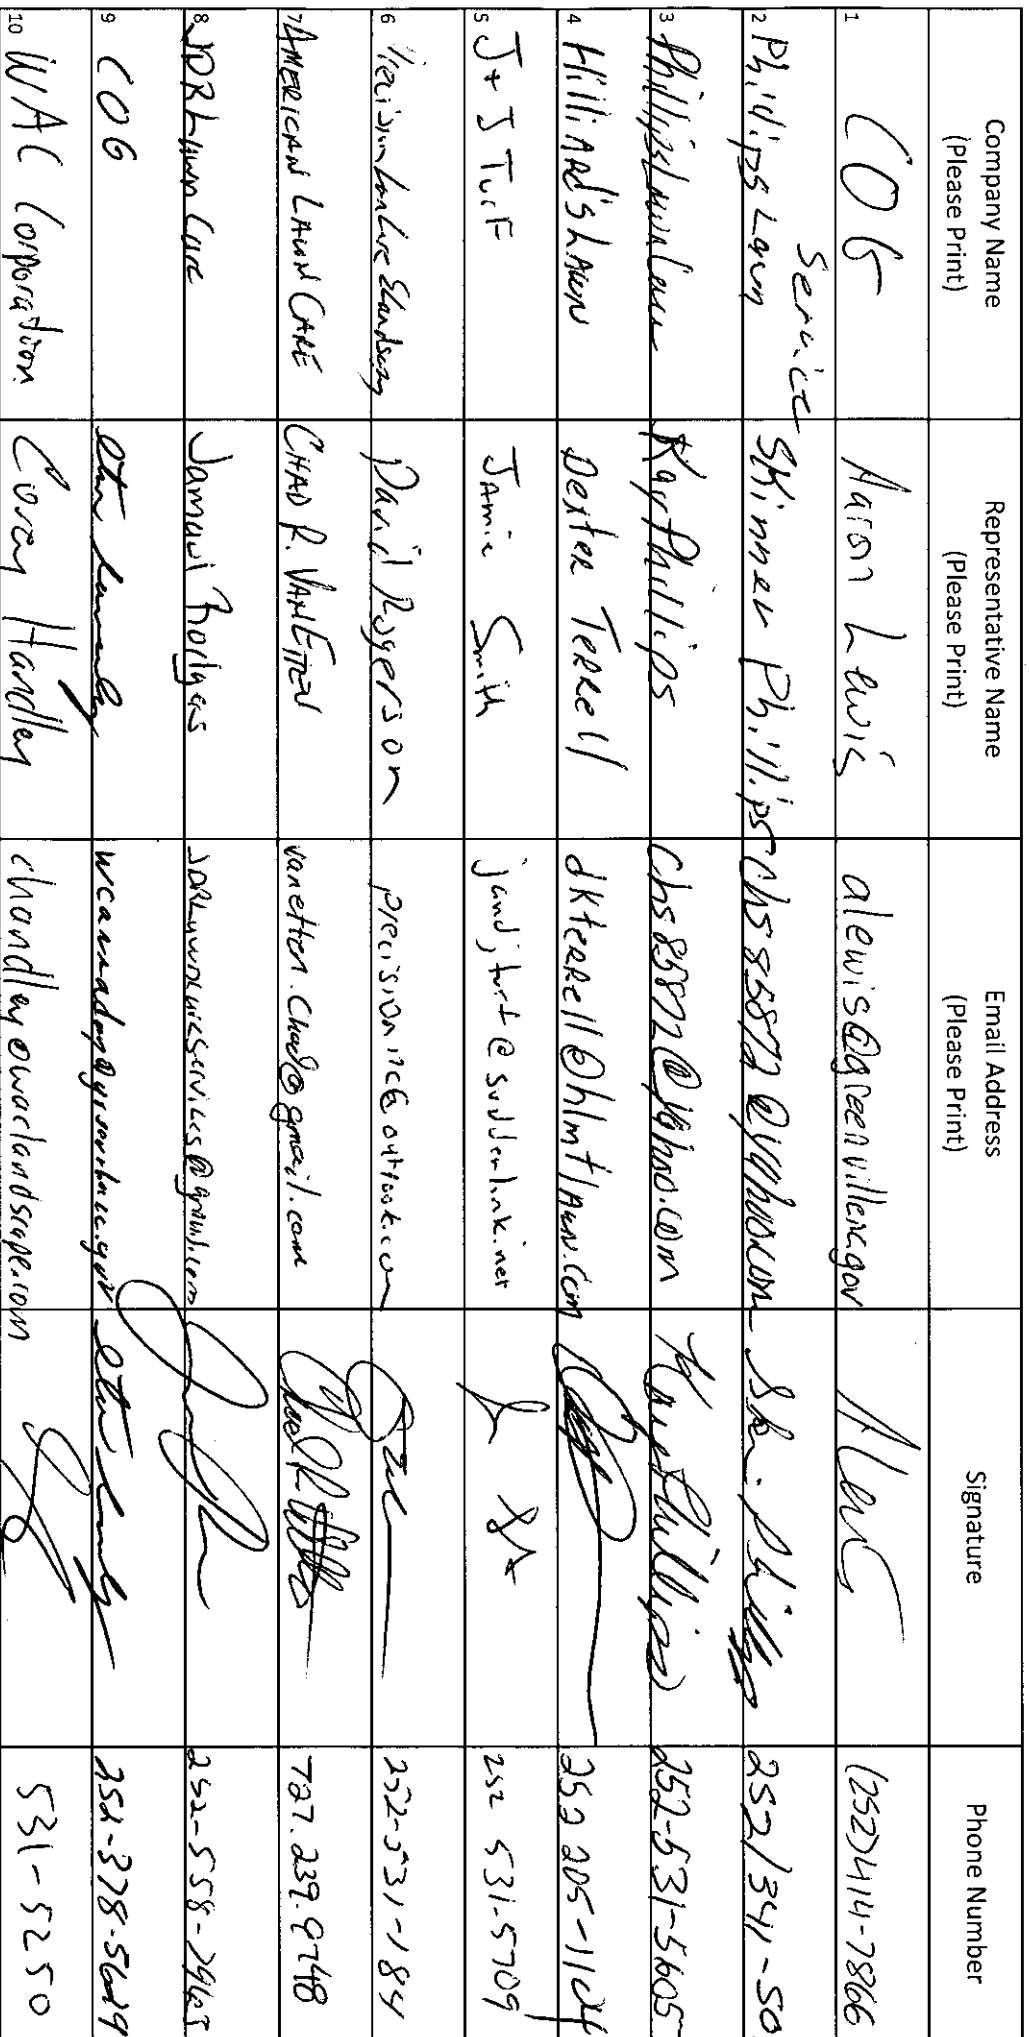 Company Name (Please Print) Representative Name (Please Print) Email Address (Please Print) Signature Phone Number
1 COG Aaron Lewis alewis@greenvillenc.gov (252)414-7866
2 Phillips Lawn Service Skinner Phillips chs85872@yahoo.com 252/341-50
3 Phillips Lawn Care Kay Phillips chs85872@yahoo.com Kay Phillips 252-531-5605
4 HilliARD's LAwn Dexter TERRell dkteRRell@hlmtlAwn.com 252 205-1104
5 J+J TurF JAmie Smith jandjturf@suddenlink.net 252 531-5709
6 David Rogerson precisionnc@outlook.com 252-531-184
7 AMERICAN LAWN CARE CHAD R. VANETTEN vanetten.chad@gmail.com 727.239.9748
8 JDR Lawn Care Jamaul JDRLawncareservices@gmail.com 252-558-7965
9 COG
10 WAC Corporation Corey Handley chandley@waclandscape.com 531-5250